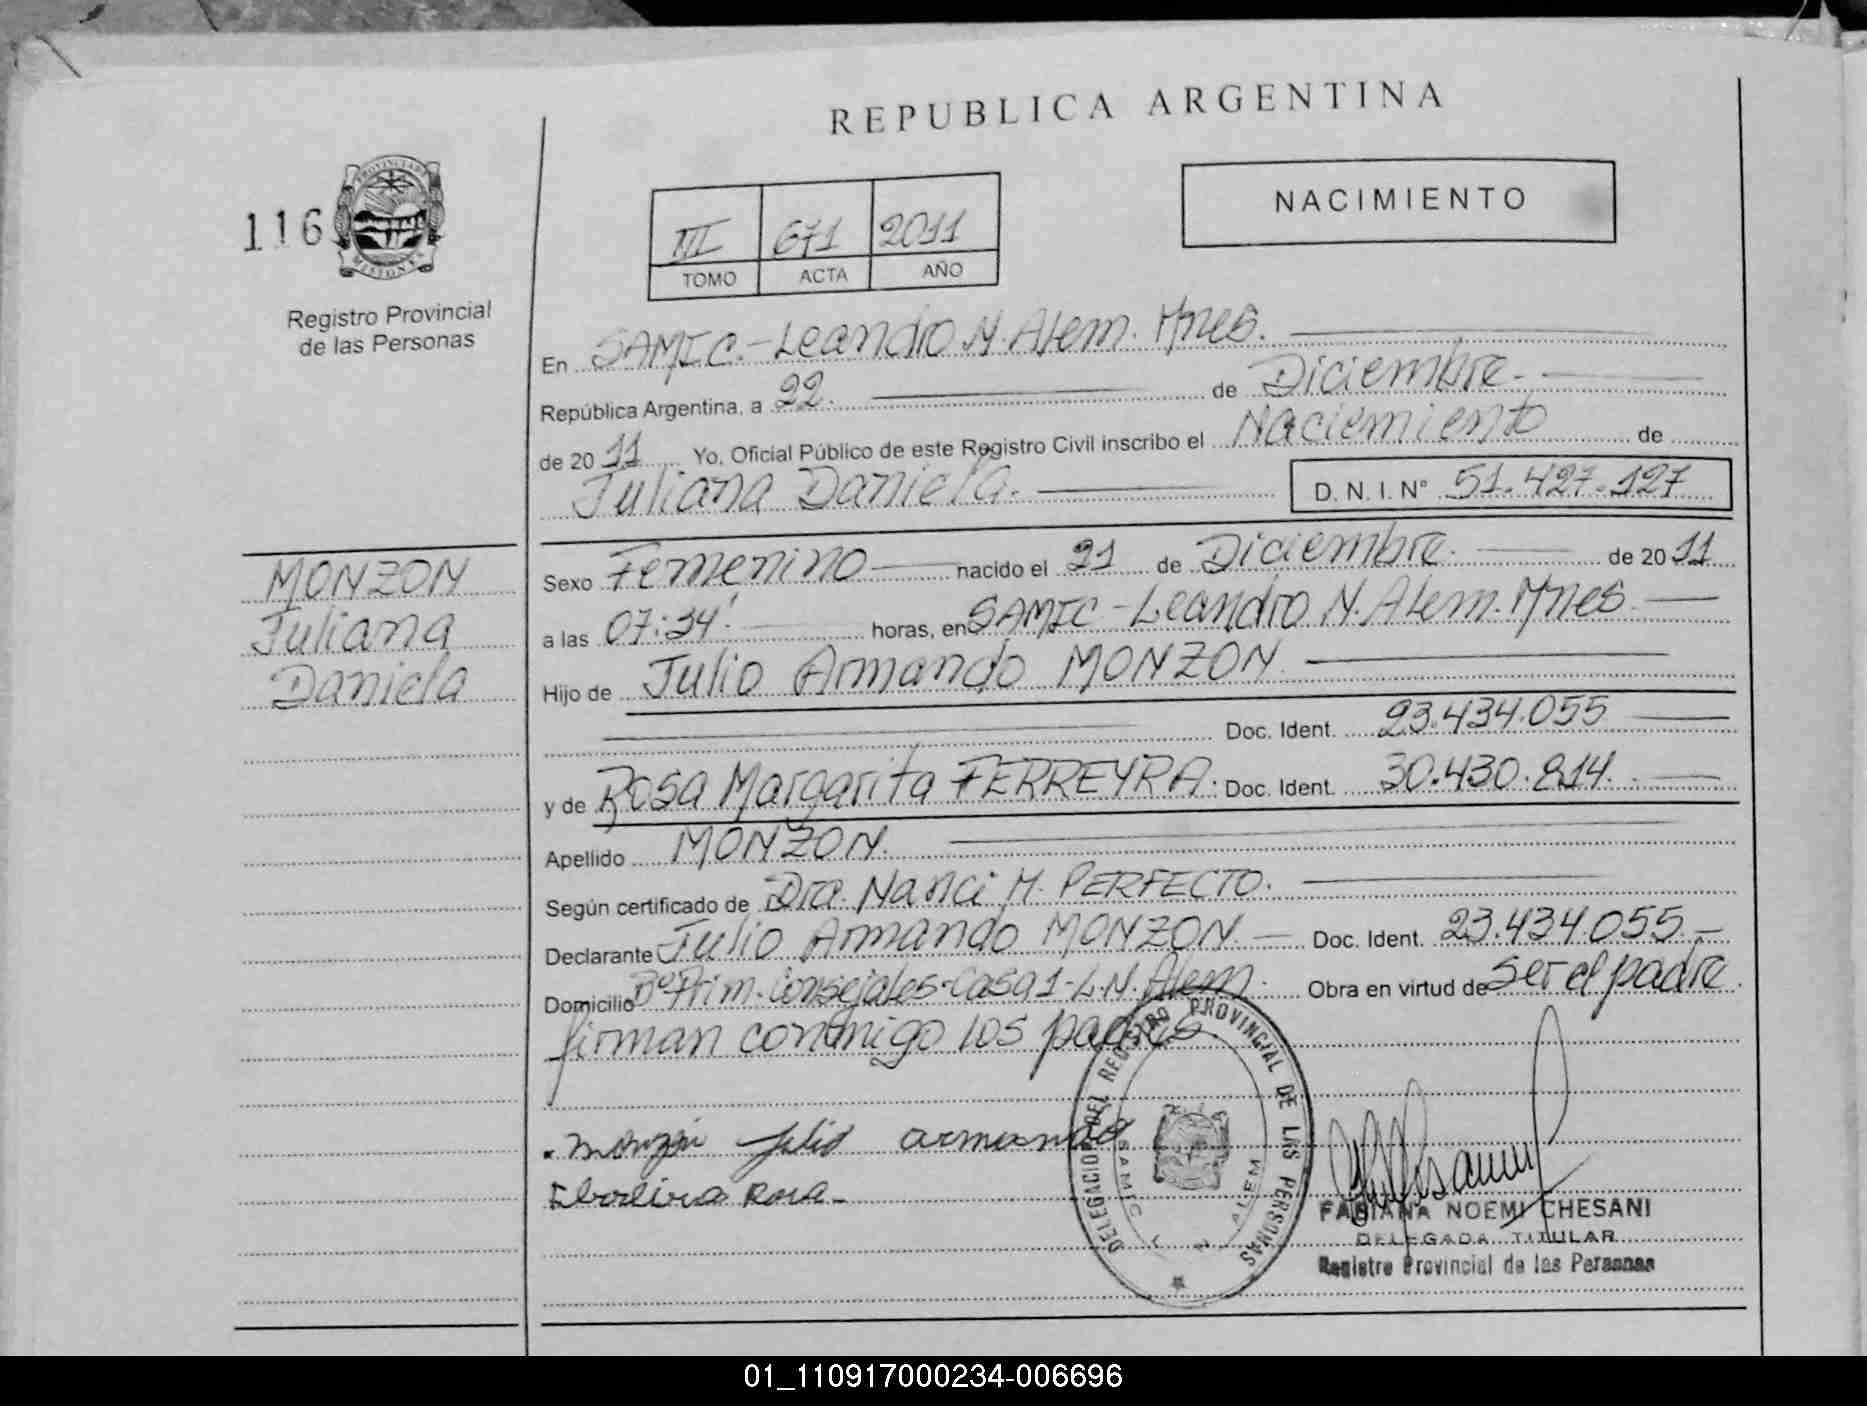 REPUBLICA ARGENTINA
116
PROVINCIA DE MISIONES
Registro Provincial
de las Personas
III 671 2011
TOMO ACTA AÑO
NACIMIENTO
En SAMIC.-Leandro N. Alem. Mnes.
República Argentina, a 22. de Diciembre.
de 20 11 Yo, Oficial Público de este Registro Civil inscribo el Naciemiento de
Juliana Daniela. D. N. I. Nº 51.427.127
MONZON
Juliana
Daniela
Sexo Femenino nacido el 21 de Diciembre. de 20 11
a las 07:34'. horas, en SAMIC - Leandro N. Alem. Mnes.
Hijo de Julio Armando MONZON.
Doc. Ident. 23.434.055
y de Rosa Margarita FERREYRA. Doc. Ident. 30.430.814.
Apellido MONZON.
Según certificado de Dra. Nanci M. PERFECTO.
Declarante Julio Armando MONZON. Doc. Ident. 23.434.055.
Domicilio Bº Prim. Consejales-Casa 1-L.N. Alem. Obra en virtud de ser el padre
firman conmigo los padres
DELEGACION DEL REGISTRO PROVINCIAL DE LAS PERSONAS
SAMIC L. N. ALEM
Monzón Julio armando
Rosa
FABIANA NOEMI CHESANI
DELEGADA TITULAR
Registro Provincial de las Personas
01_110917000234-006696